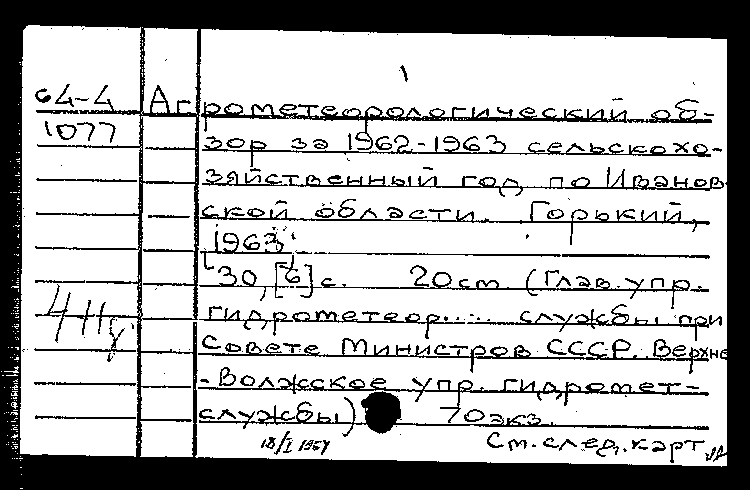 64-4 Агрометеорологический об-
1077 зор за 1962-1963 сельскохо-
зяйственный год по Иванов-
ской области. Горький,
1963.
30, [6] с. 20 см. (Глав. упр.
гидрометеор..... службы при
Совете Министров СССР. Верхне
-Волжское упр. гидромет-
службы) 70 экз.
18/I 1964 См. след. карт